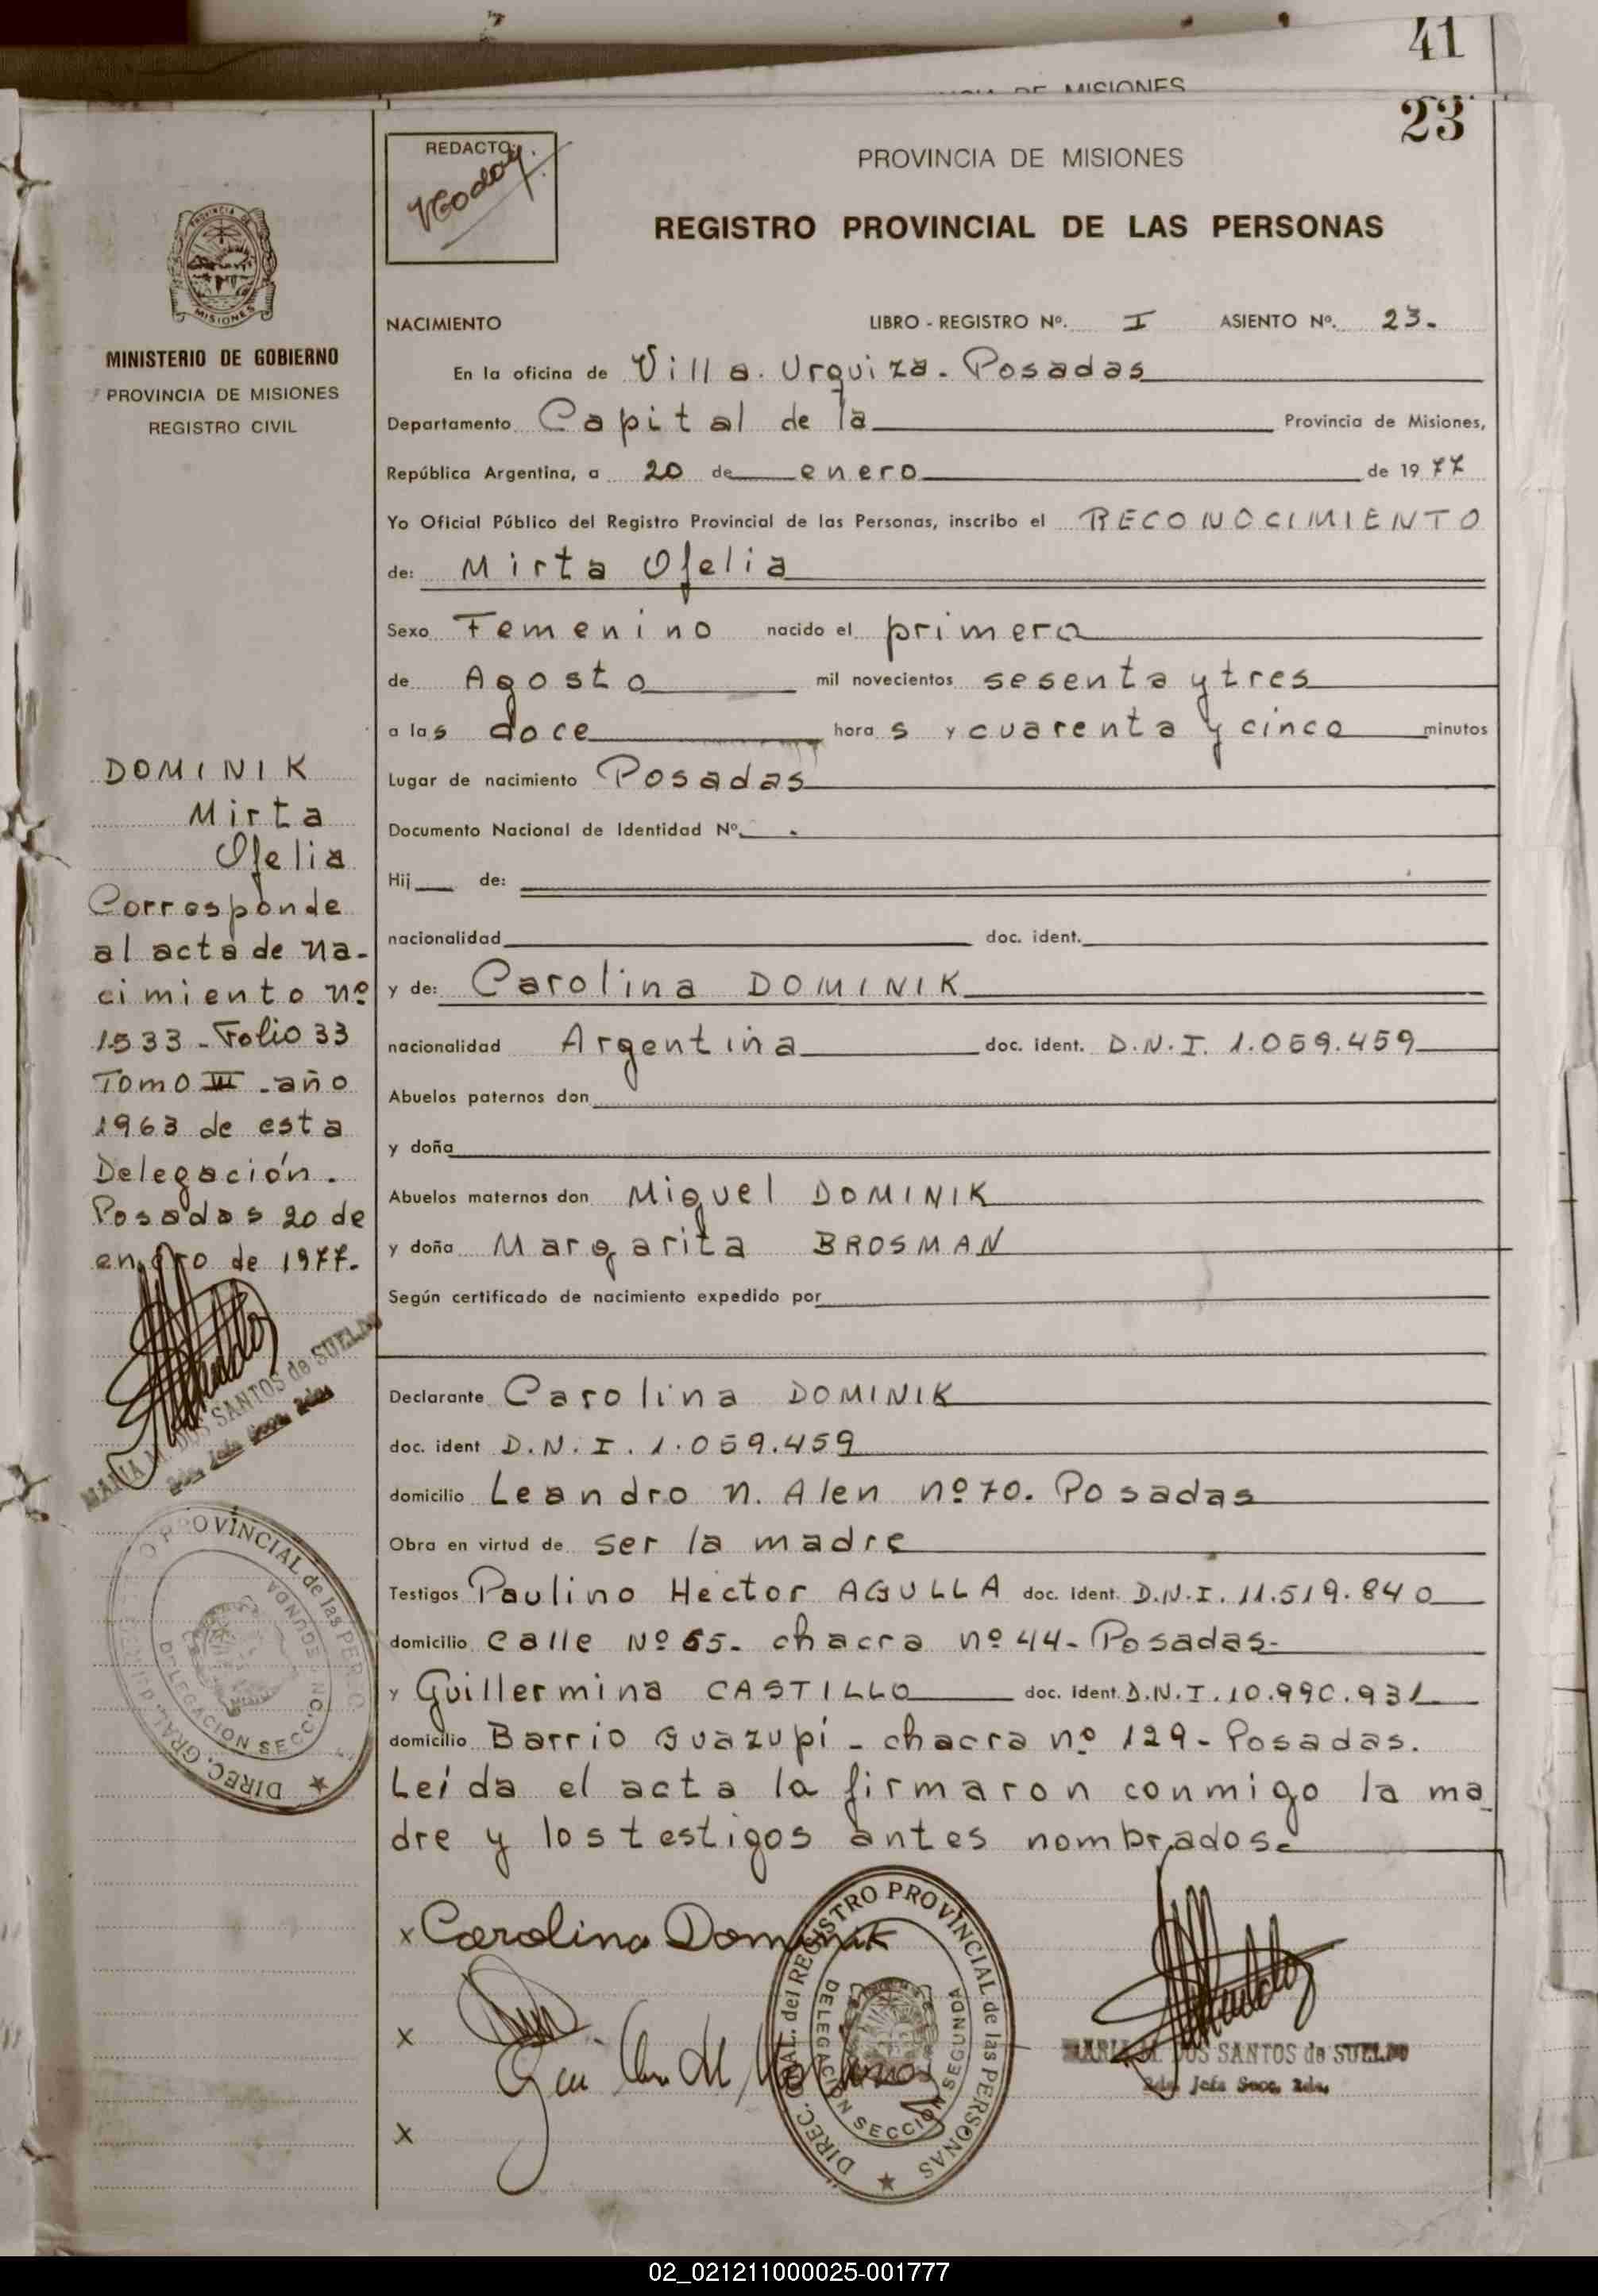 41
DE MISIONES
23
REDACTO:
PROVINCIA DE MISIONES
REGISTRO PROVINCIAL DE LAS PERSONAS
PROVINCIA DE
MISIONES
MINISTERIO DE GOBIERNO
PROVINCIA DE MISIONES
REGISTRO CIVIL
NACIMIENTO LIBRO - REGISTRO Nº. I ASIENTO Nº. 23.
En la oficina de Villa. Urquiza. Posadas
Departamento Capital de la Provincia de Misiones,
República Argentina, a 20 de enero de 1977
Yo Oficial Público del Registro Provincial de las Personas, inscribo el RECONOCIMIENTO
de: Mirta Ofelia
Sexo Femenino nacido el primero
de Agosto mil novecientos sesenta y tres
a las doce horas y cuarenta y cinco minutos
Lugar de nacimiento Posadas
Documento Nacional de Identidad Nº
Hij de:
nacionalidad doc. ident.
y de: Carolina DOMINIK
nacionalidad Argentina doc. ident. D.N.I. 1.059.459
Abuelos paternos don
y doña
Abuelos maternos don Miguel DOMINIK
y doña Margarita BROSMAN
Según certificado de nacimiento expedido por
Declarante Carolina DOMINIK
doc. ident D.N.I. 1.059.459
domicilio Leandro N. Alen nº 70. Posadas
Obra en virtud de ser la madre
Testigos Paulino Hector AGULLA doc. Ident. D.N.I. 11.519.840
domicilio calle Nº 65- chacra nº 44- Posadas-
y Guillermina CASTILLO doc. Ident. D.N.I. 10.990.931
domicilio Barrio Guazupí - chacra nº 129- Posadas.
Leída el acta la firmaron conmigo la ma
dre y los testigos antes nombrados.
DOMINIK
Mirta
Ofelia
Corresponde
al acta de na-
cimiento nº
1533 - Folio 33
Tomo III - año
1963 de esta
Delegación.
Posadas 20 de
enero de 1977.
MARIA M. DOS SANTOS de SUELDO
2da. Jefa Secc. 2da.
DIREC. GRAL. del REGISTRO PROVINCIAL de las PERSONAS
DELEGACION SECCION SEGUNDA
x Carolina Dominik
x
x
DIREC. GRAL. del REGISTRO PROVINCIAL de las PERSONAS
DELEGACION SECCION SEGUNDA
MARIA M. DOS SANTOS de SUELDO
2da. Jefa Secc. 2da.
02_021211000025-001777